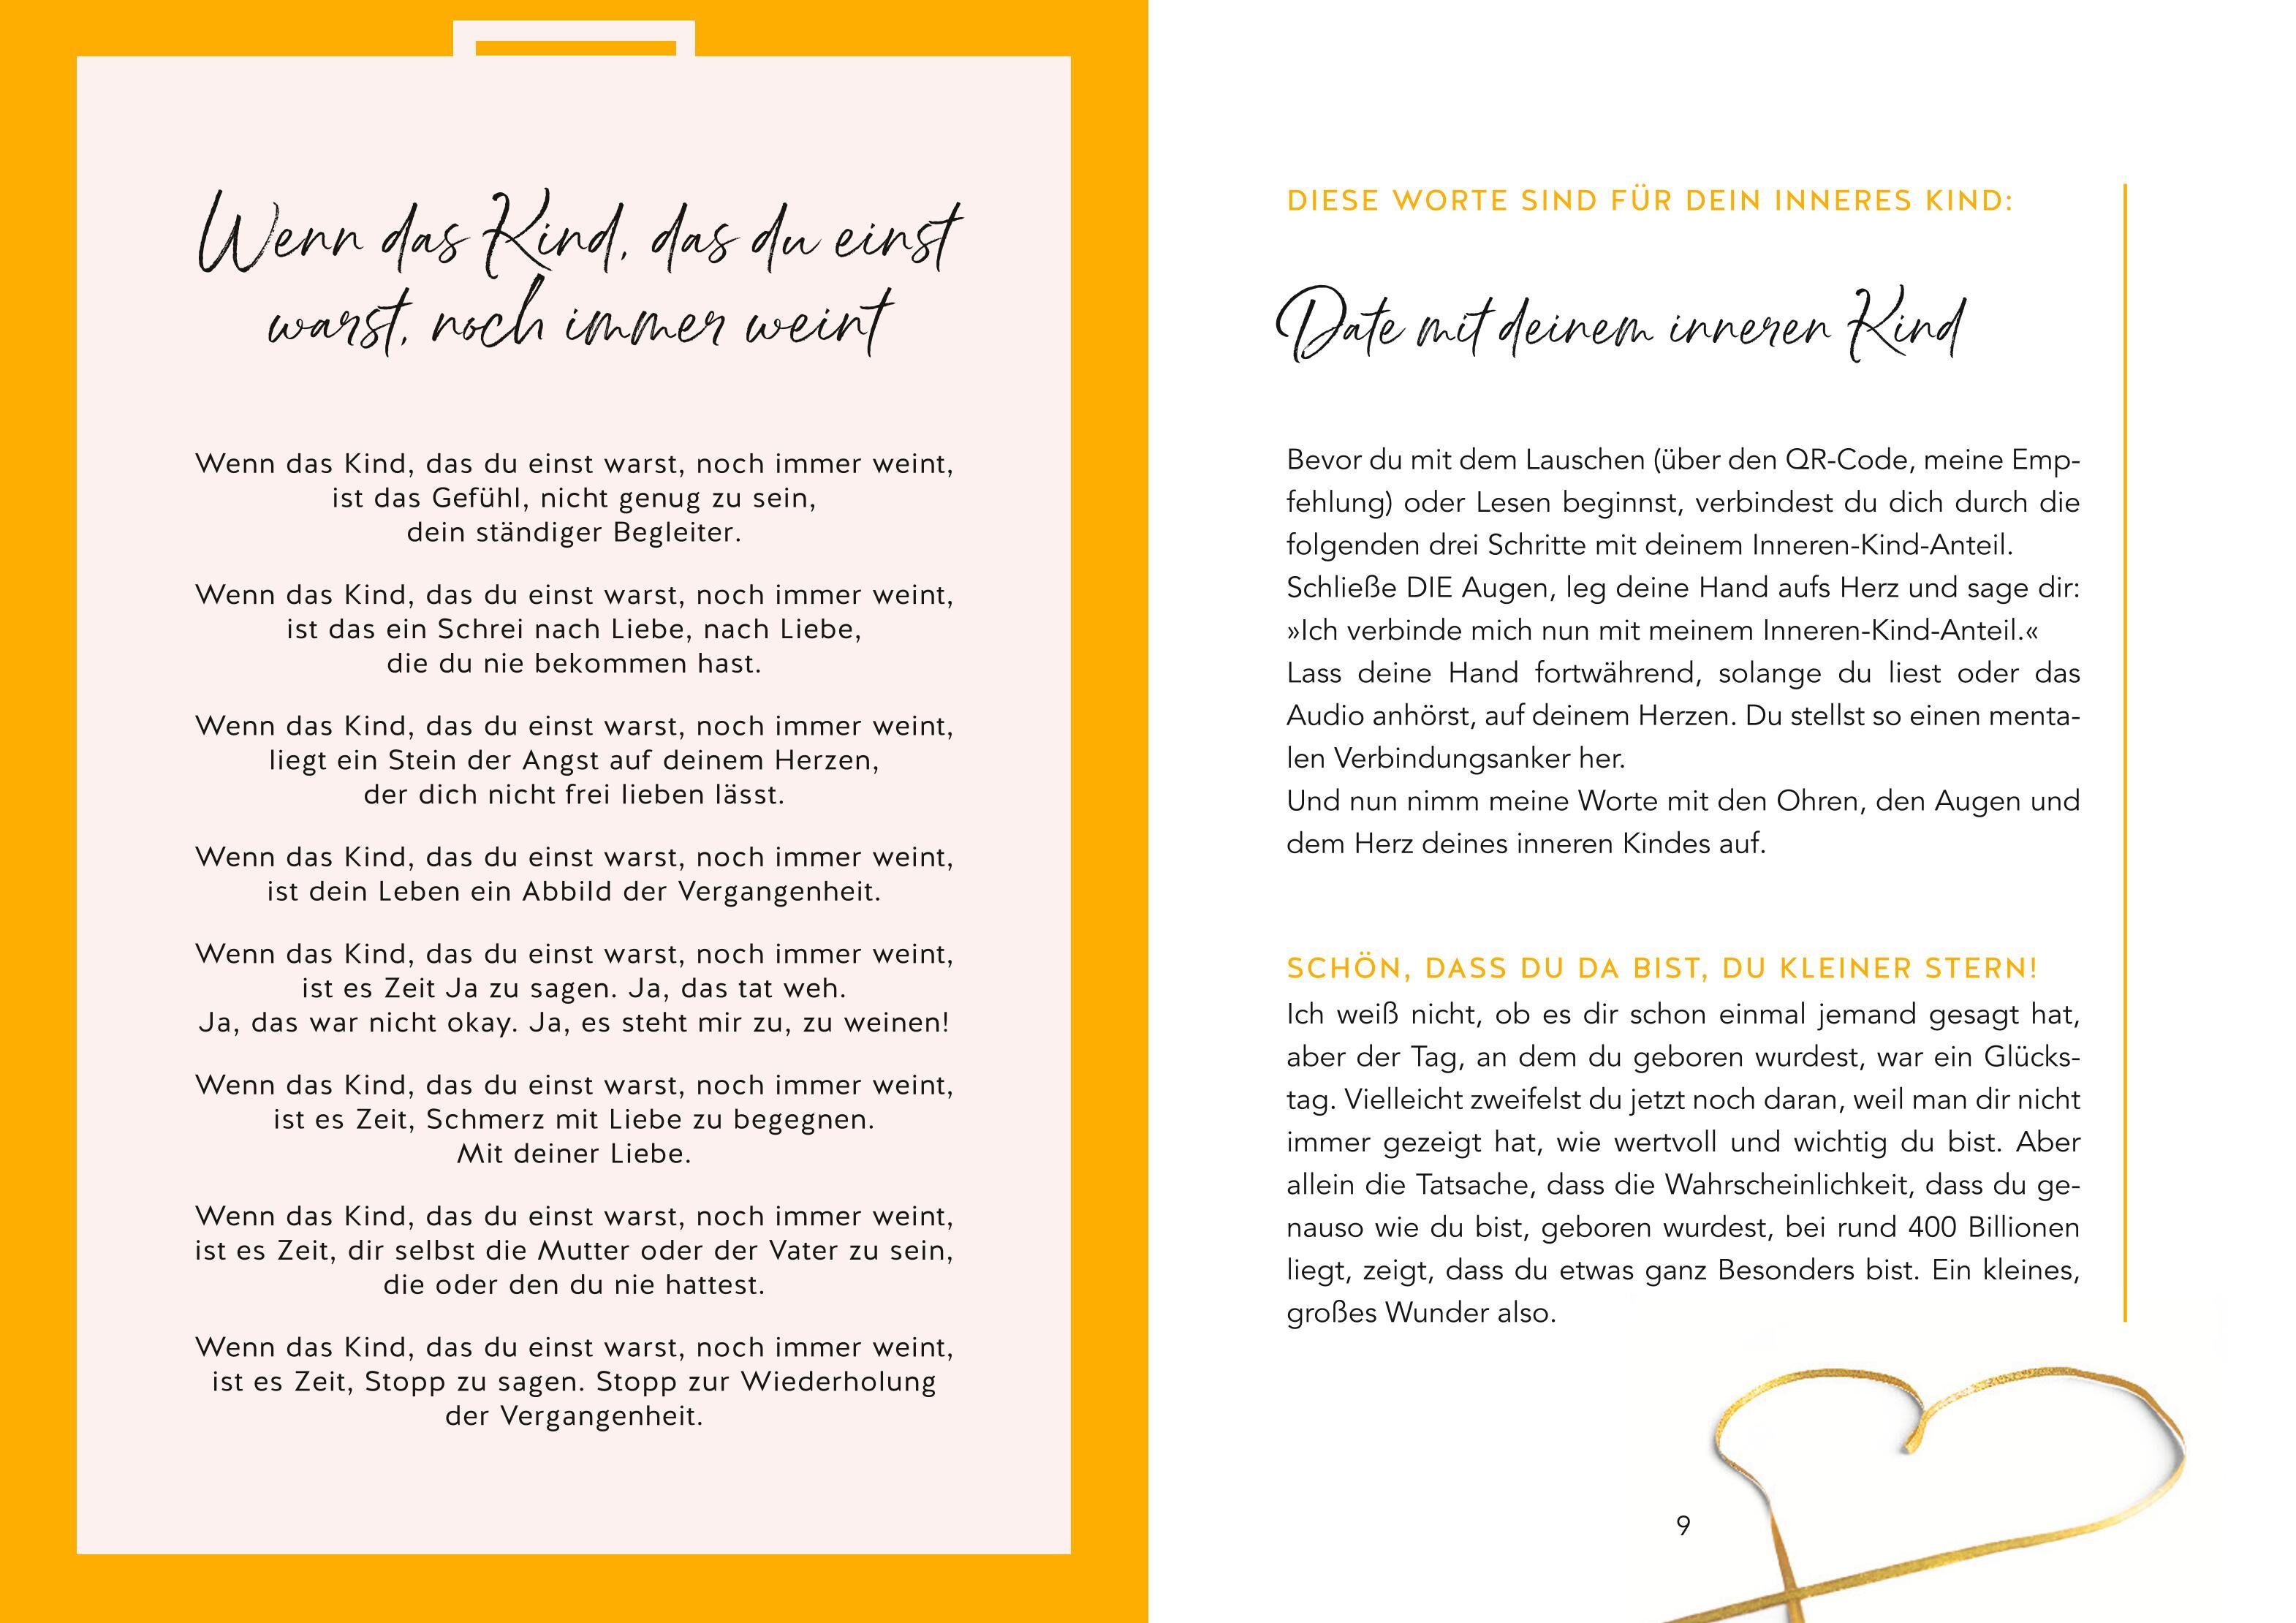 Wenn das Kind, das du einst
warst, noch immer weint
Wenn das Kind, das du einst warst, noch immer weint,
ist das Gefühl, nicht genug zu sein,
dein ständiger Begleiter.
Wenn das Kind, das du einst warst, noch immer weint,
ist das ein Schrei nach Liebe, nach Liebe,
die du nie bekommen hast.
Wenn das Kind, das du einst warst, noch immer weint,
liegt ein Stein der Angst auf deinem Herzen,
der dich nicht frei lieben lässt.
Wenn das Kind, das du einst warst, noch immer weint,
ist dein Leben ein Abbild der Vergangenheit.
Wenn das Kind, das du einst warst, noch immer weint,
ist es Zeit Ja zu sagen. Ja, das tat weh.
Ja, das war nicht okay. Ja, es steht mir zu, zu weinen!
Wenn das Kind, das du einst warst, noch immer weint,
ist es Zeit, Schmerz mit Liebe zu begegnen.
Mit deiner Liebe.
Wenn das Kind, das du einst warst, noch immer weint,
ist es Zeit, dir selbst die Mutter oder der Vater zu sein,
die oder den du nie hattest.
Wenn das Kind, das du einst warst, noch immer weint,
ist es Zeit, Stopp zu sagen. Stopp zur Wiederholung
der Vergangenheit.
DIESE WORTE SIND FÜR DEIN INNERES KIND:
Date mit deinem inneren Kind
Bevor du mit dem Lauschen (über den QR-Code, meine Emp-
fehlung) oder Lesen beginnst, verbindest du dich durch die
folgenden drei Schritte mit deinem Inneren-Kind-Anteil.
Schließe DIE Augen, leg deine Hand aufs Herz und sage dir:
»Ich verbinde mich nun mit meinem Inneren-Kind-Anteil.«
Lass deine Hand fortwährend, solange du liest oder das
Audio anhörst, auf deinem Herzen. Du stellst so einen menta-
len Verbindungsanker her.
Und nun nimm meine Worte mit den Ohren, den Augen und
dem Herz deines inneren Kindes auf.
SCHÖN, DASS DU DA BIST, DU KLEINER STERN!
Ich weiß nicht, ob es dir schon einmal jemand gesagt hat,
aber der Tag, an dem du geboren wurdest, war ein Glücks-
tag. Vielleicht zweifelst du jetzt noch daran, weil man dir nicht
immer gezeigt hat, wie wertvoll und wichtig du bist. Aber
allein die Tatsache, dass die Wahrscheinlichkeit, dass du ge-
nauso wie du bist, geboren wurdest, bei rund 400 Billionen
liegt, zeigt, dass du etwas ganz Besonders bist. Ein kleines,
großes Wunder also.
9